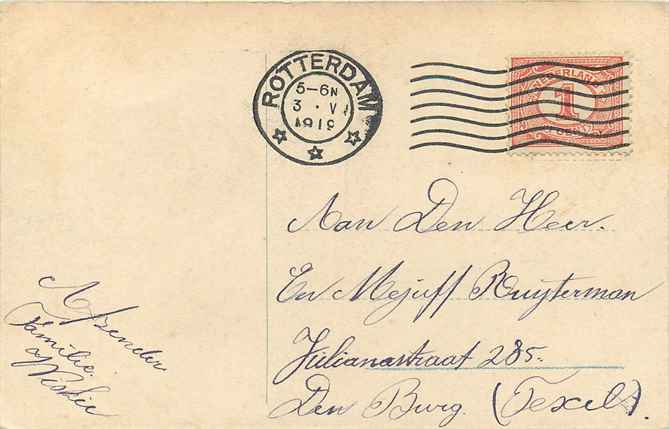 ROTTERDAM
5-6N
3 · V
1919
NEDERLAND
1
Aan Den Heer.
En Mejuff Ruijterman
Julianastraat 285.
Den Burg. (Texel).
Afzender
Familie